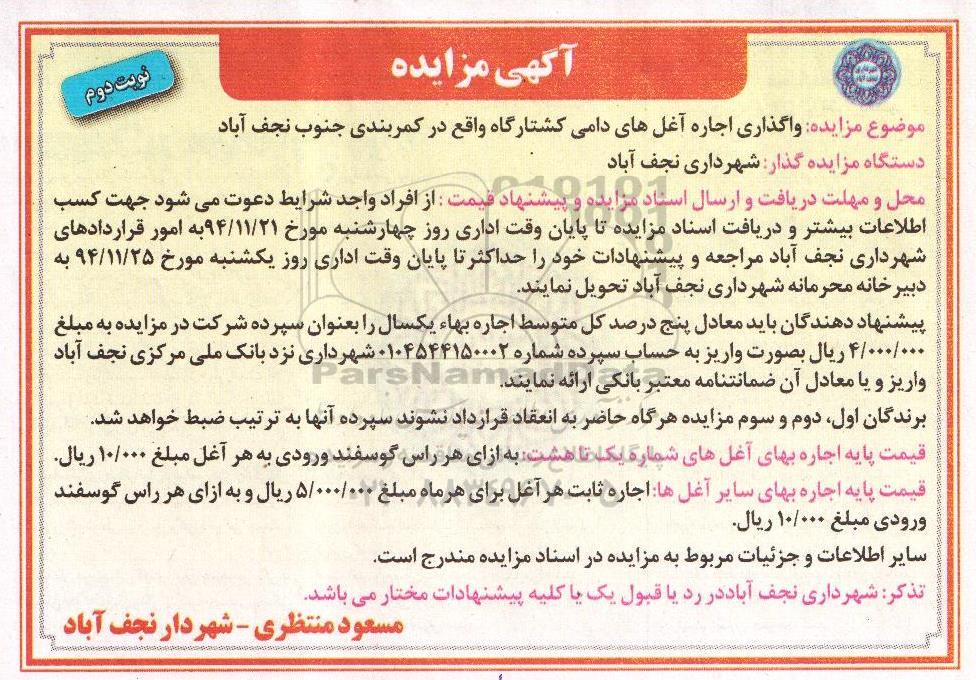 آگهی مزایده
نوبت دوم
شهرداری نجف آباد
موضوع مزایده: واگذاری اجاره آغل های دامی کشتارگاه واقع در کمربندی جنوب نجف آباد
دستگاه مزایده گذار: شهرداری نجف آباد
محل و مهلت دریافت و ارسال اسناد مزایده و پیشنهاد قیمت: از افراد واجد شرایط دعوت می شود جهت کسب
اطلاعات بیشتر و دریافت اسناد مزایده تا پایان وقت اداری روز چهارشنبه مورخ ۹۴/۱۱/۲۱به امور قراردادهای
شهرداری نجف آباد مراجعه و پیشنهادات خود را حداکثرتا پایان وقت اداری روز یکشنبه مورخ ۹۴/۱۱/۲۵ به
دبیرخانه محرمانه شهرداری نجف آباد تحویل نمایند.
پیشنهاد دهندگان باید معادل پنج درصد کل متوسط اجاره بهاء یکسال را بعنوان سپرده شرکت در مزایده به مبلغ
۴/۰۰۰/۰۰۰ ریال بصورت واریز به حساب سپرده شماره ۰۱۰۴۵۴۴۱۵۰۰۰۲شهرداری نزد بانک ملی مرکزی نجف آباد
واریز و یا معادل آن ضمانتنامه معتبر بانکی ارائه نمایند.
برندگان اول، دوم و سوم مزایده هرگاه حاضر به انعقاد قرارداد نشوند سپرده آنها به ترتیب ضبط خواهد شد.
قیمت پایه اجاره بهای آغل های شماره یک تا هشت: به ازای هر راس گوسفند ورودی به هر آغل مبلغ ۱۰/۰۰۰ ریال.
قیمت پایه اجاره بهای سایر آغل ها: اجاره ثابت هر آغل برای هرماه مبلغ ۵/۰۰۰/۰۰۰ ریال و به ازای هر راس گوسفند
ورودی مبلغ ۱۰/۰۰۰ ریال.
سایر اطلاعات و جزئیات مربوط به مزایده در اسناد مزایده مندرج است.
تذکر: شهرداری نجف آباددر رد یا قبول یک یا کلیه پیشنهادات مختار می باشد.
مسعود منتظری - شهردار نجف آباد
ParsNamadData